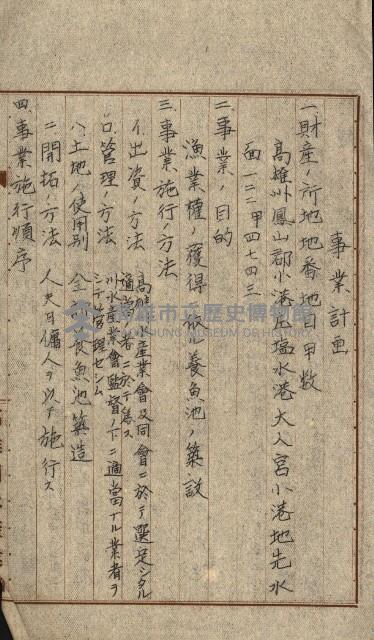 事業計画
一、財産ノ所地地番地目甲数
高雄州鳳山郡小港庄塩水港大人宮小港地先水
面一二二甲四七四三
二、事業ノ目的
漁業権ノ獲得 養魚池ノ築設
三、事業施行ノ方法
イ、出資ノ方法 高雄州水産業会及同会ニ於テ選定シタル
適当 者ニ於テ為ス
ロ、管理ノ方法 州水産業会監督ノ下ニ適当ナル業者ヲ
シテ管理セシム
ハ、土地ノ使用別 全部養魚池築造
ニ、開拓ノ方法 人夫ヲ傭入ヲ以テ施行ス
四、事業施行順序
高雄市立歷史博物館
KAOHSIUNG MUSEUM OF HISTORY